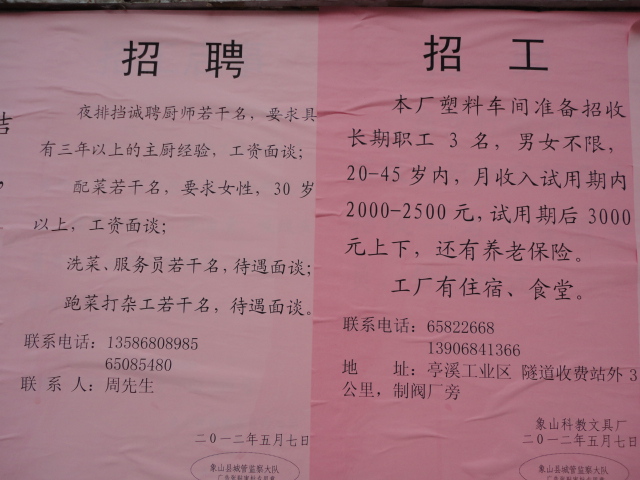 招聘
夜排挡诚聘厨师若干名，要求具
有三年以上的主厨经验，工资面谈；
配菜若干名，要求女性，30 岁
以上，工资面谈；
洗菜、服务员若干名，待遇面谈；
跑菜打杂工若干名，待遇面谈。
联系电话：13586808985
65085480
联 系 人：周先生
二〇一二年五月七日
象山县城管监察大队
招工
本厂塑料车间准备招收
长期职工 3 名，男女不限，
20-45 岁内，月收入试用期内
2000-2500 元，试用期后 3000
元上下，还有养老保险。
工厂有住宿、食堂。
联系电话：65822668
13906841366
地 址：亭溪工业区 隧道收费站外 3
公里，制阀厂旁
象山科教文具厂
二〇一二年五月七日
象山县城管监察大队